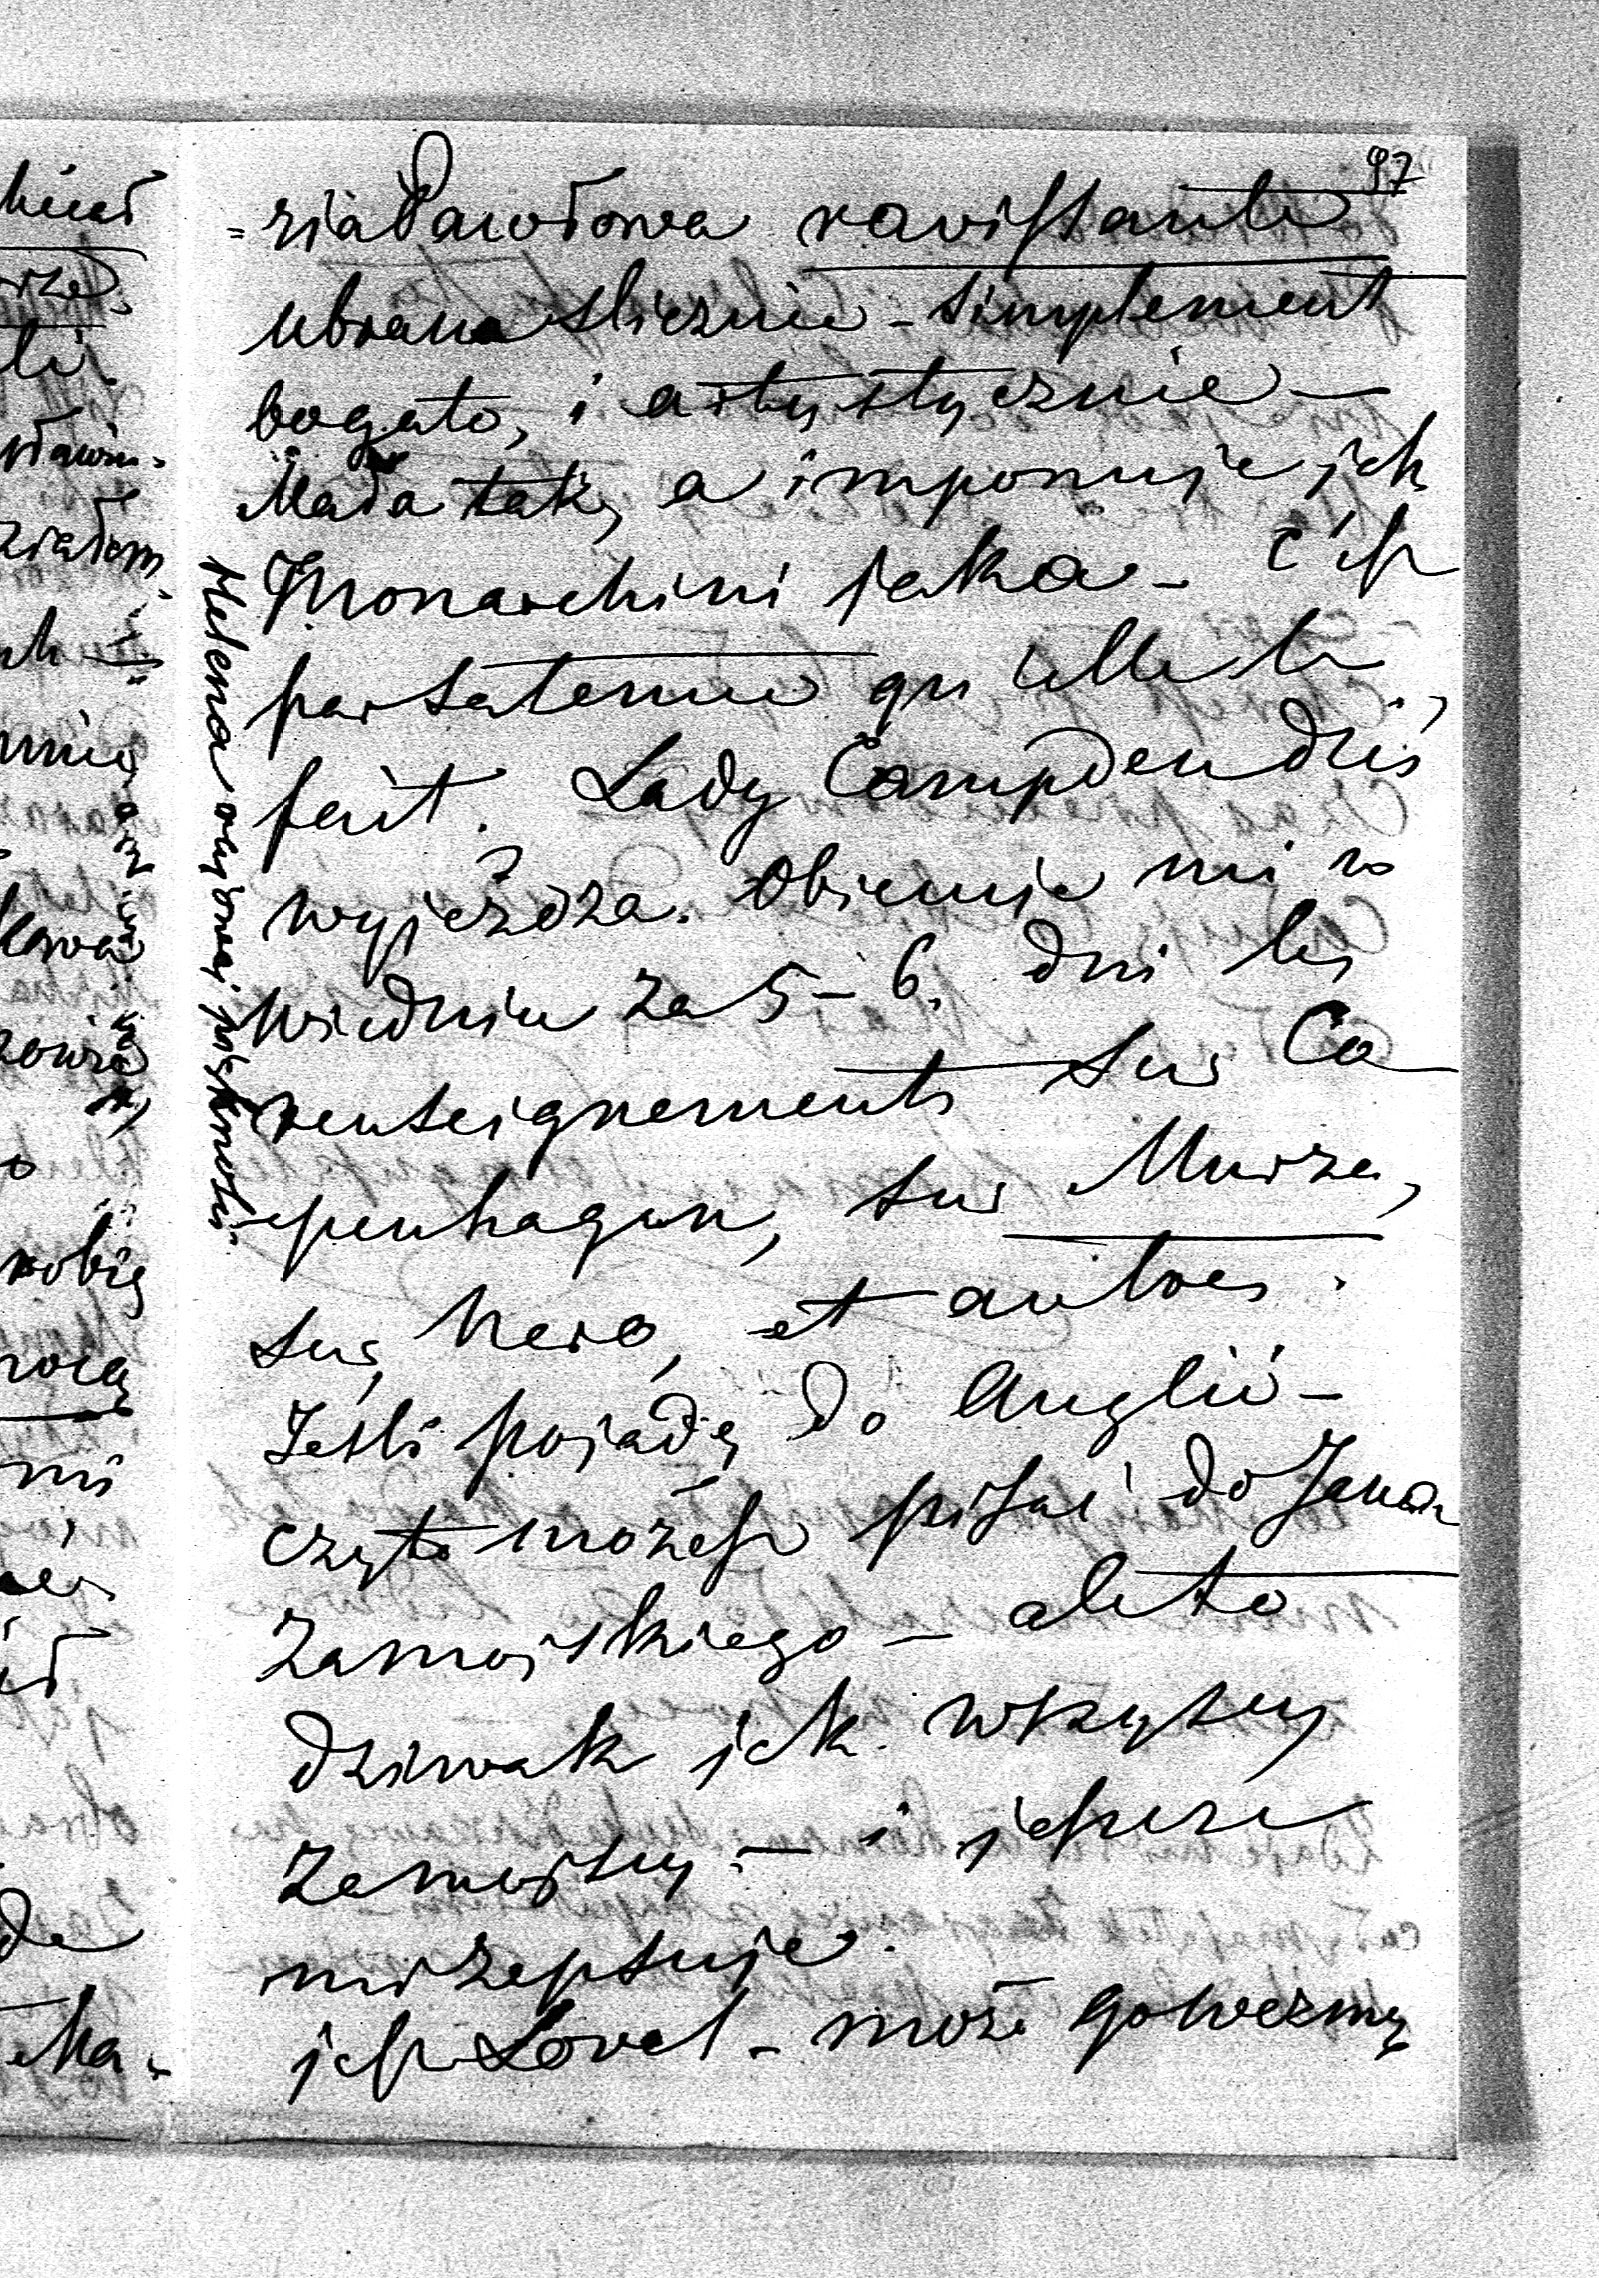 97
=ziadawołowa ravissante
ubrana slicznie - simplement
bogato, i artystycznie —
Mała tak, a imponuje jak
Monarchini jaka - c'est
par sa tenue qu'elle le
fait. Lady Campden dziś
wyjeżdża. Obiecuje mi w
Wiedniu za 5 - 6. dni les
renseignements sur Co
-penhagen, sur Murze,
sur Nero, et autres.
Jesli pojadę do Anglii -
czyto możesz pisać do Jana
Zamojskiego - ale to
dziwak jak wszyscy
Zamojscy - i jeszcze
jest Lovel - może go wezmę
Helena